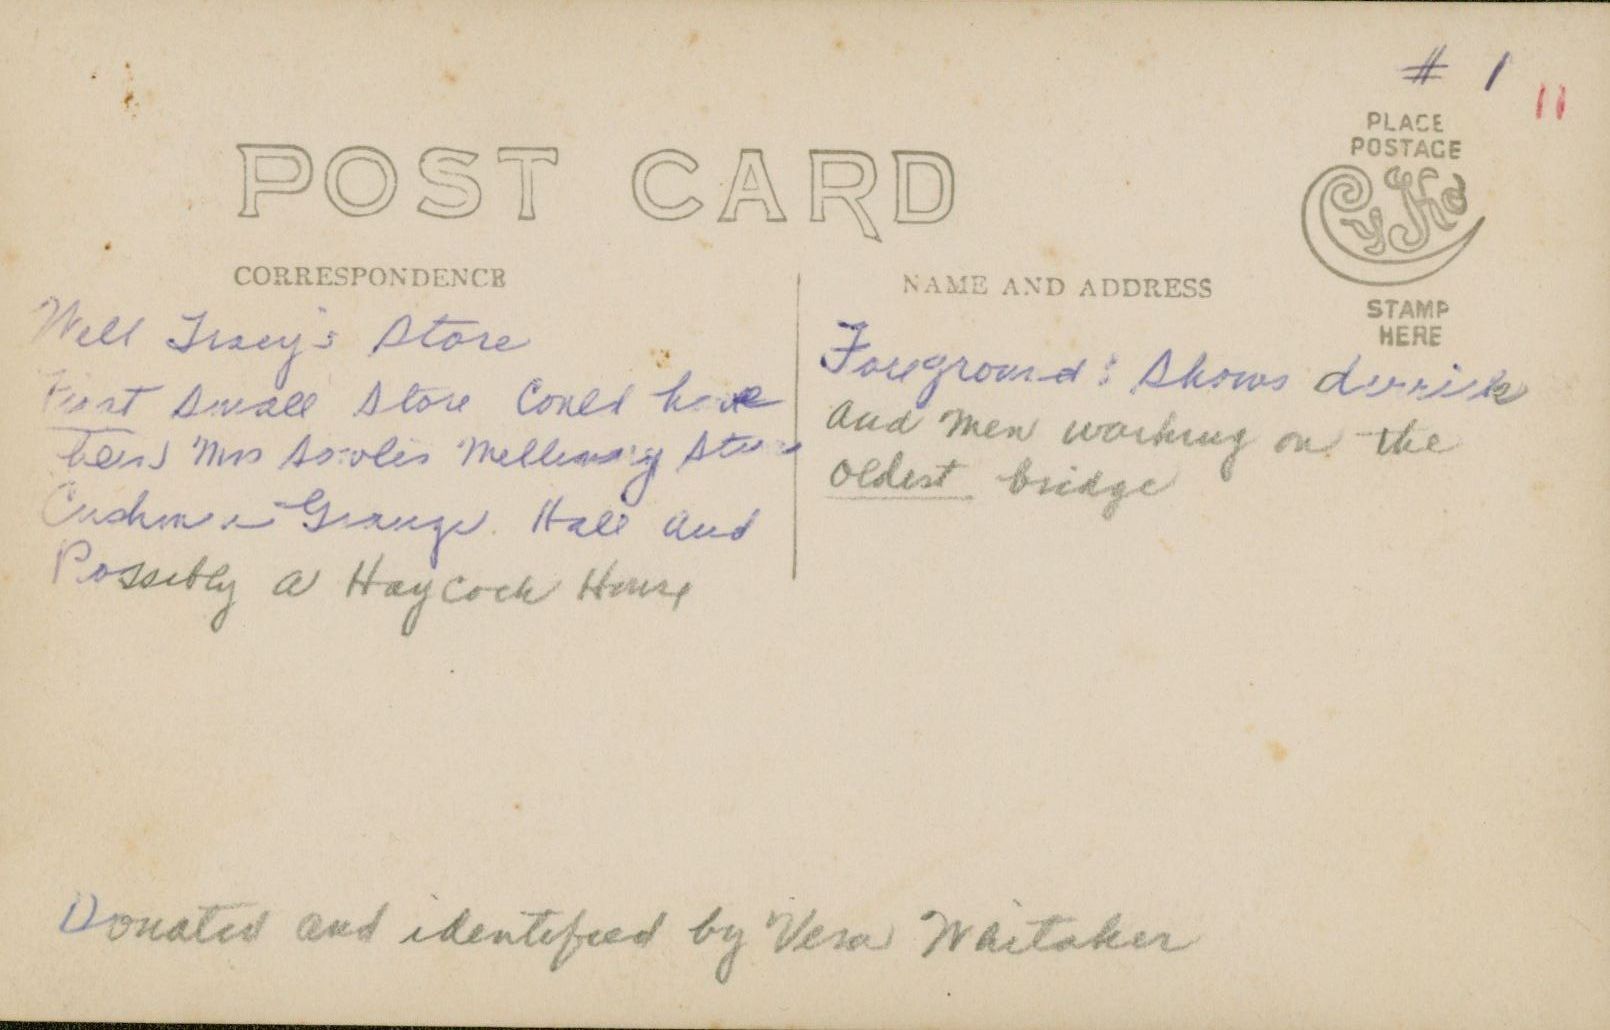 # 1
11
PLACE
POSTAGE
STAMP
HERE
POST CARD
CORRESPONDENCE
NAME AND ADDRESS
Will Tracy's Store
First Small Store Could have
been Mrs Millinery Store
Cushman Grange Hall and
Possibly a Haycock House
Foreground: Shows derrick
and men working on the
oldest bridge
Donated and identified by Vera Whitaker